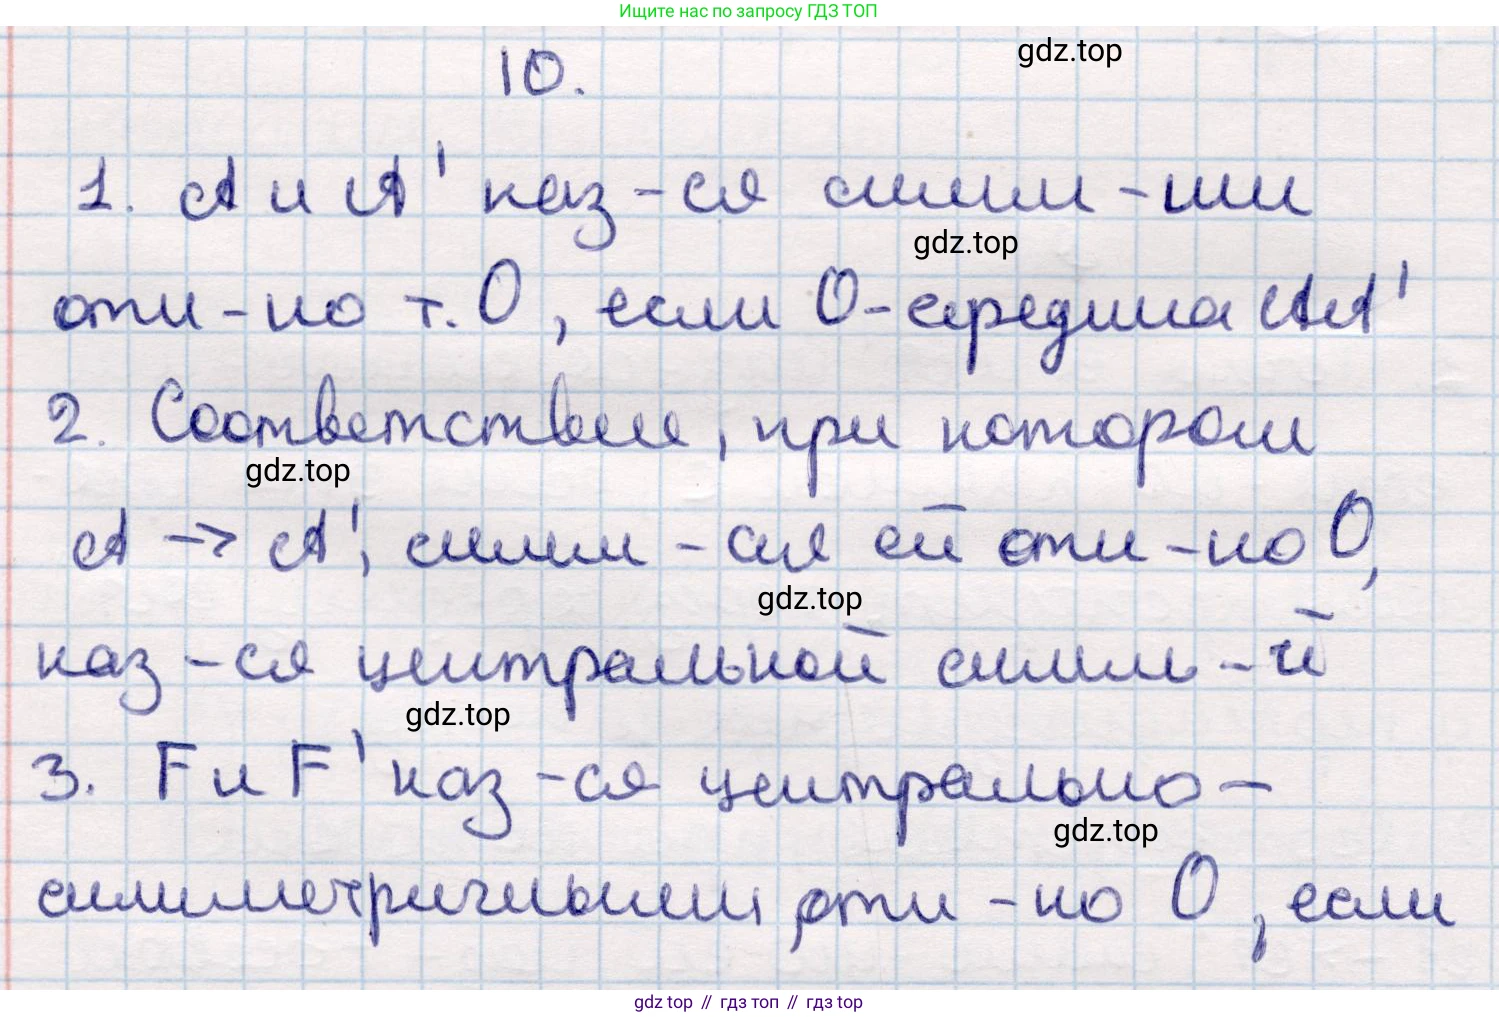 Ищите нас по запросу ГДЗ ТОП
10.
gdz.top
1. A и A' наз-ся симм-ми
gdz.top
отн-но т. O, если O-середина AA'
2. Соответствие, при котором
gdz.top
A → A', симм-ная ей отн-но O,
gdz.top
наз-ся центральной симм-й
gdz.top
3. F и F' наз-ся центрально-
gdz.top
симметричными отн-но O, если
gdz.top // гдз топ // гдз top